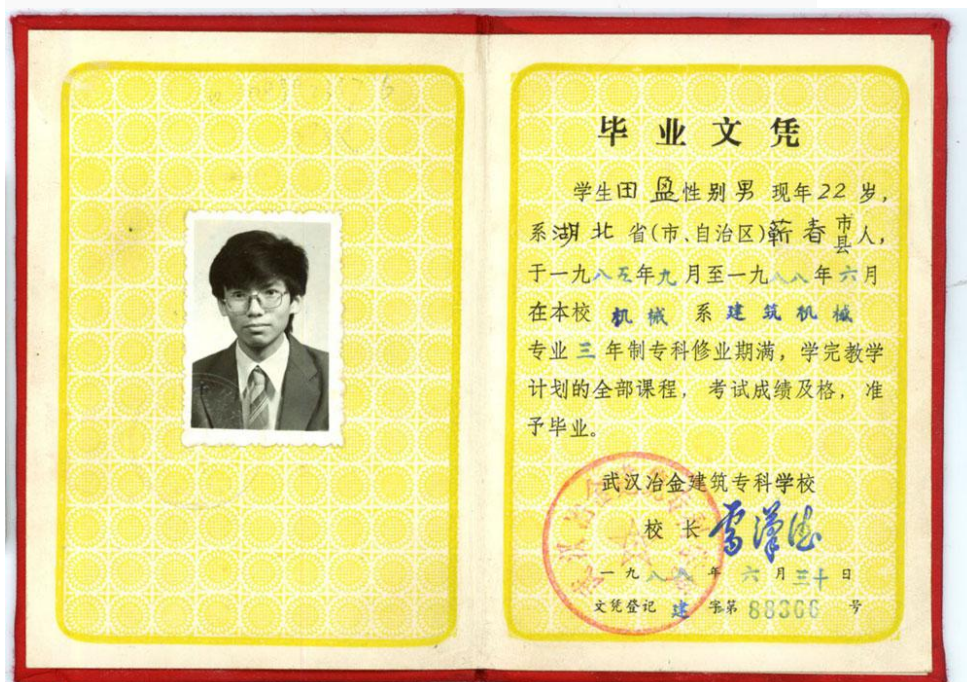 毕业文凭
学生田盈性别男 现年22岁，
系湖北省(市、自治区)蕲春市县人，
于一九八五年九月至一九八八年六月
在本校 机械 系 建筑机械
专业三年制专科修业期满，学完教学
计划的全部课程，考试成绩及格，准
予毕业。
武汉冶金建筑专科学校
校长
一九八八年六月三十日
文凭登记 建 字第 88366 号